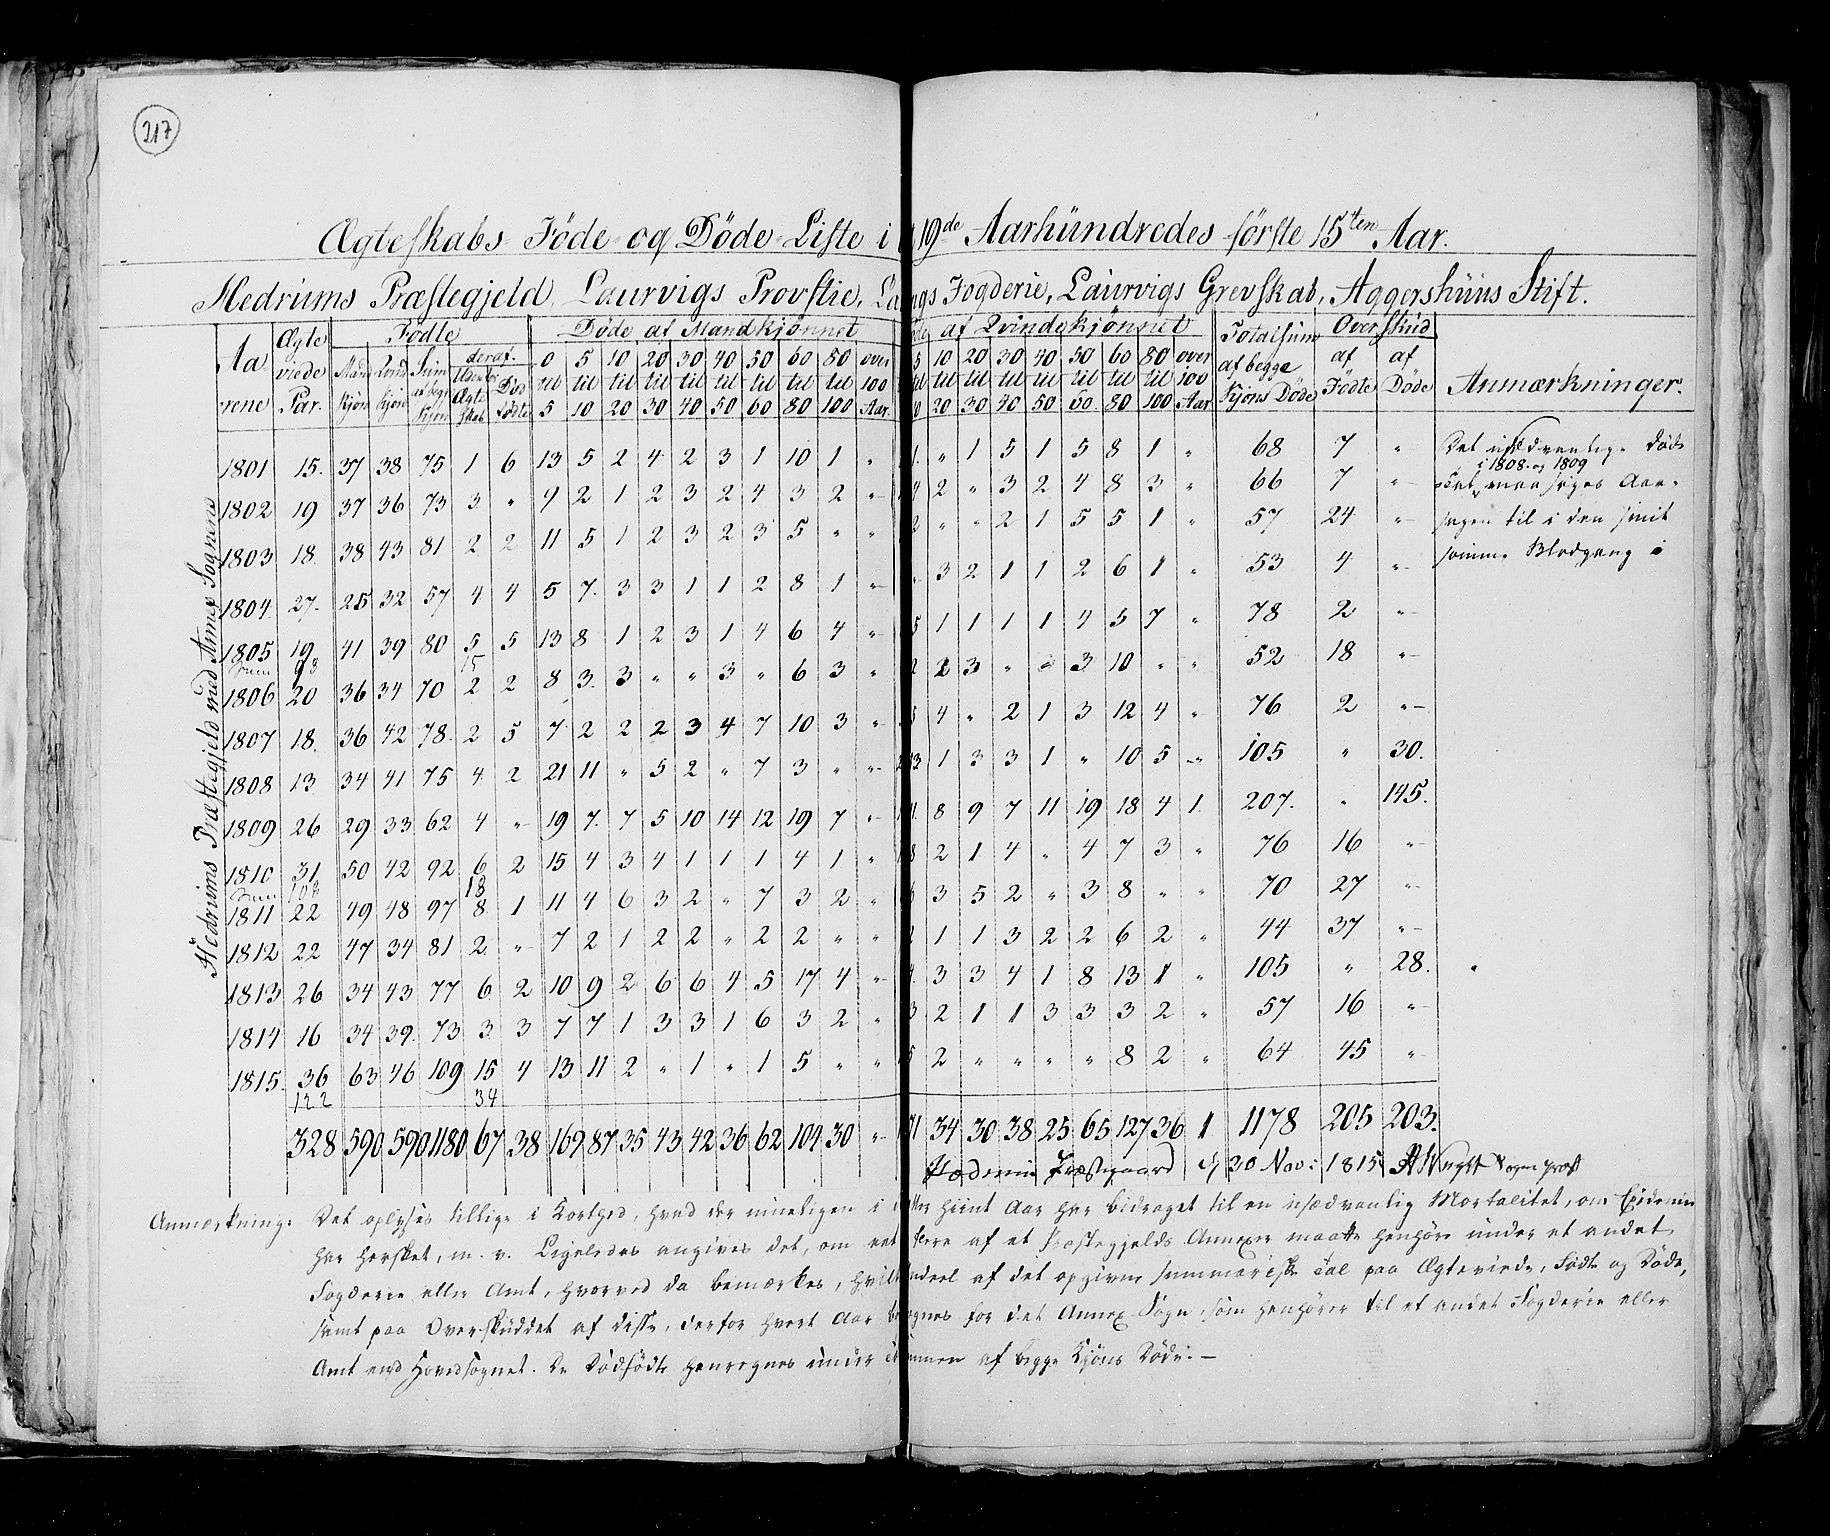 217
Ægteskabs- Föde- og Döde-Liste i 19de Aarhündredes förste 15ten Aar.
Hedrums Præstegjeld, Laurvigs Provstie, Fogderie, Laurvigs Grevskab, Aggershuus Stift.
Hedrums Præstegjeld med Annex Sognene
Aarene | Ægteviede Par. | Födte | Döde af Mandkjönnet | af Qvindekjönnet | Totalsum af begge Kjöns Döde | Overskud af Födte | af Döde | Anmærkninger.
Mand Kjön | Qvind Kjön | Sum af begge Kjön | deraf. Udenfor Ægteskab | Död födte | 0 til 5 | 5 til 10 | 10 til 20 | 20 til 30 | 30 til 40 | 40 til 50 | 50 til 60 | 60 til 80 | 80 til 100 | over 100 Aar. | 10 til 20 | 20 til 30 | 30 til 40 | 40 til 50 | 50 til 60 | 60 til 80 | 80 til 100 | over 100 Aar
1801 15. 37 38 75 1 6 13 5 2 4 2 3 1 10 1 " 1. " 1 5 1 5 8 1 " 68 7 " Det usædvanlige Döds
i 1808. og 1809
1802 19 37 36 73 3 " 9 2 1 2 3 2 4 3 2 " 4 2 " 3 2 4 8 3 " 66 7 " Tal maa söges Aar-
1803 18. 38 43 81 2 2 11 5 1 2 3 2 3 5 " " 2 " " 2 1 5 5 1 " 57 24 " sagen til i den smit
1804 27. 25 32 57 4 4 5 7. 3 3 1 1 2 8 1 " 3 2 1 1 2 6 1 " 53 4 " somme Blodgang
1805 19 41 39 80 5 5 13 8 1 2 3 1 4 6 4 " 5 1 1 1 1 4 5 7 " 78 2 "
Sum 98 15
1806 20 36 34 70 2 2 8 3. 3 " " 3 " 6 3 " 2 3 " 3 10 " " 52 18 "
1807 18. 36 42 78. 2 5 7 2 2 2 3 4 7 10 3 " 5 4 " 2 1 3 12 4 " 76 2 "
1808 13 34 41 75 4 2 21 11 " 5 2 " 7 3 " " 13 1 3 3 1 " 10 5 " 105 " 30.
1809 26 29 33 62 4 " 19 7. 7 5 10 14 12 19 7 " 8 9 7 11 19 18 4 1. 207. " 145.
1810 31 50 42 92 6 2 15 4 3 4 1 1 1 4 1 " 8 2 1 4 " 4 7 3 " 76 16 "
Sum 108 18
1811 22 49 48 97 8 1 11 4 6 3 2 " 7 3 2 " 3 5 2 " 3 8 " " 70 27 "
1812 22 47 34 81 2 " 7 2 1 2 2 " 2 2 " " 1 1 3 2 2 6 2 " 44 37 "
1813 26 34 43 77 6 2 10 9 2 6 6 4 5 17 4 " 3 3 4 1 8 13 1 " 105 " 28.
1814 16 34 39. 73 3 3 7 7 1 3 3 1 6 3 2 " 3 2 1 1 3 3 3 2 " 57 16 "
1815. 36 63 46 109 15 4 13 11 2 " 1 " 1 5 " " 5 2 " " " " 8 2 " 64 45 "
122 34
328 590 590 1180 67 38 169 87 35 43 42 36 62 104 30 " 71 34 30 38 25 65 127 36 1 1178 205 203.
Hedrum Præstegaard d 20 Nov: 1815 Sogne Præst
Anmærkning: Det oplyses tillige i Korthed, hvad der muligen i hvert Aar har bidraget til en usædvanlig Mortalitet, om Epidemie
har hersket, m. v. Ligeledes angives det, om et flere af et Præstegjelds Annexer maatte henhöre under et andet
Fogderie eller Amt, hvorved da bemærkes, af det opgivne summariske Tal paa Ægteviede, Födte og Döde,
samt paa Overskuddet af disse, derfor hvert Aar for det Annex-Sogn, som henhörer til et andet Fogderie eller
Amt end Hovedsognet. De Dödfödte henregnes under Summen af begge Kjöns Döde.